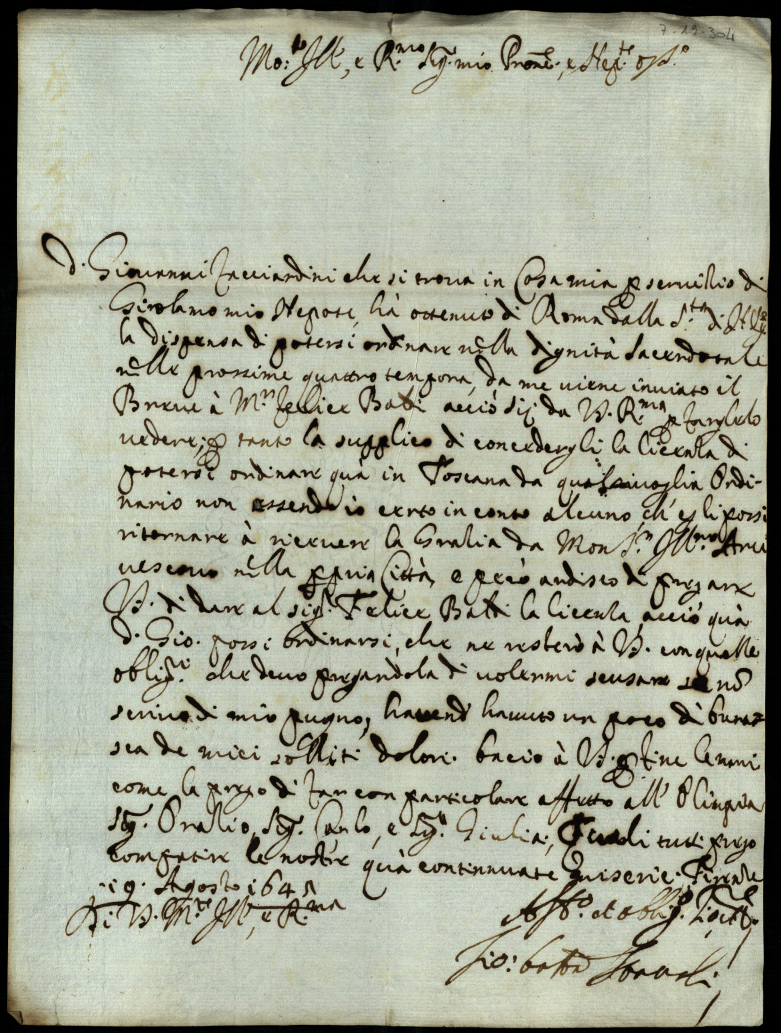 7-19-304
Mo:to Ill.e, e R.mo Sig. mio Pron.e, e Nep.te oss.o
d. Giovanni Zacciardini che si trova in Casa mia p servitio di
Girolamo mio Nepote, hà ottenuto di Roma dalla S.tà di
la dispensa di potersi ordinare nella dignità Sacerdotale
nelle prossime quattro tempora, da me viene inviato il
Breve à M.r Felice Batti acciò sij da V. R.ma
vedere; p tanto la supplico di concedergli la licenza di
potersi ordinare quà in Toscana da qualsivoglia Ordi-
nario non essendo io certo in conto alcuno ch'egli possi
ritornare à ricever la Gratia da Mons.r Ill.mo Arci
vescovo nella ppria Città, e perciò ardisco di pregare
V.S. di dare al Sig. Felice Batti la licenza acciò quà
d. Gio. possi ordinarsi, che ne resterò à V.S. con quelle
oblig.ni che devo pregandola di volermi scusare se nō
scrivo di mio pugno, havend' havuto un poco di buras
sca de miei soliti dolori. bacio à V.S. p fine le mani
come la prego di far con particolare affetto all'
Sig. Oratio, Sig. Carlo, e Sig.a Giulia, quali tutti prego
compatire le nostre quà continuate miserie. Firenze
19. Agosto 164
Di V.S. M.to Ill.e, e R.ma
Aff.o et obblig.
Gio: batta